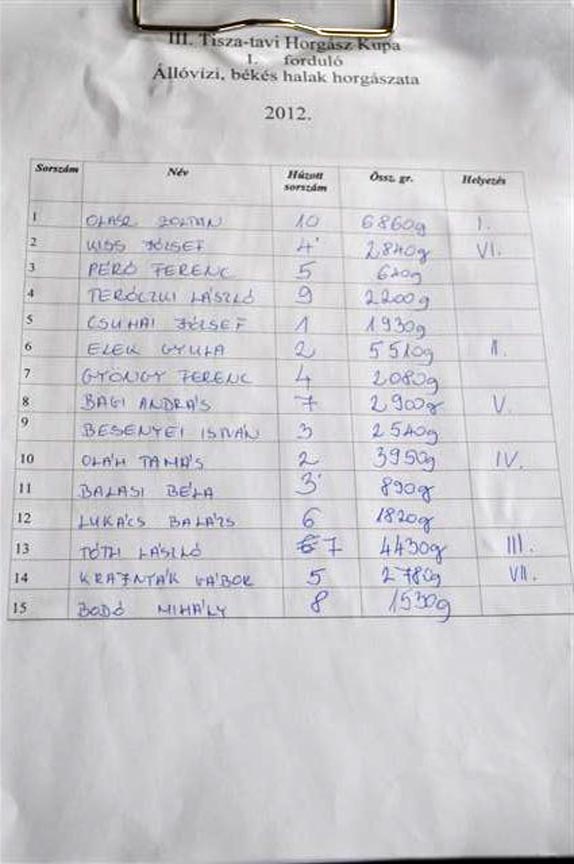 III. Tisza-tavi Horgász Kupa
1. forduló
Állóvízi, békés halak horgászata
2012.
Sorszám Név Húzott sorszám Össz. gr. Helyezés
1 OLASZ ZOLTÁN 10 6860g I.
2 KISS JÓZSEF 4' 2840g VI.
3 PÉRÓ FERENC 5 640g
4 TERÓCZKI LÁSZLÓ 9 2200g
5 CSUHAI JÓZSEF 1 1930g
6 ELEK GYULA 2 5510g II.
7 GYÖNGY FERENC 4 2080g
8 BAGI ANDRÁS 7 2900gr V.
9 BESENYEI ISTVÁN 3 2540g
10 OLÁH TAMÁS 2 3950g IV.
11 BALASI BÉLA 3' 890gr
12 LUKÁCS BALÁZS 6 1820gr
13 TÓTH LÁSZLÓ 7 4430gr III.
14 KRAJNYÁK GÁBOR 5 2780g VII.
15 BODÓ MIHÁLY 8 1530g